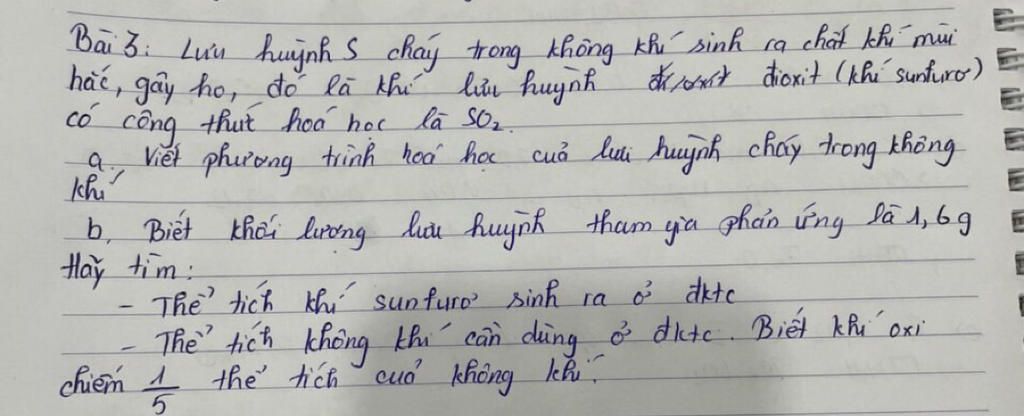 Bài 3: Lưu huỳnh S cháy trong không khí sinh ra chất khí mùi
hắc, gây ho, đó là khí lưu huỳnh đioxit (khí sunfurơ)
có công thức hoá học là SO₂.
a. Viết phương trình hoá học cuả lưu huỳnh cháy trong không
khí
b. Biết khối lượng lưu huỳnh tham gia phản ứng là 1,6 g
Hãy tìm:
- Thể tích khí sunfurơ sinh ra ở đktc
- Thể tích không khí cần dùng ở đktc. Biết khí oxi
chiếm 1/5 thể tích cuả không khí.